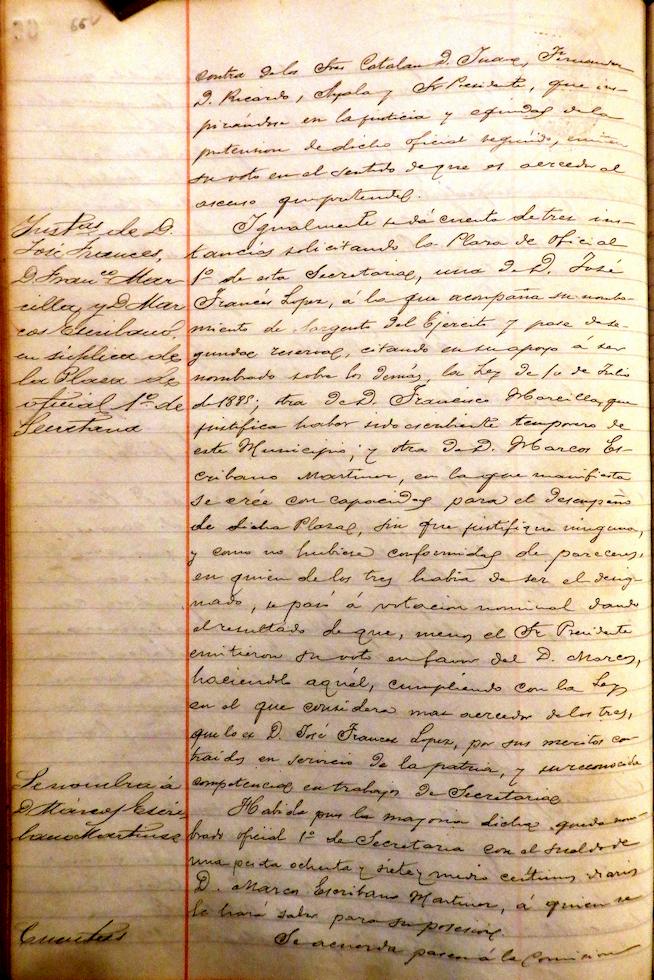 66v
contra de los Sres Catalan D. Juan, Fernandez
D. Ricardo, Ayala y Sr Presidente, que ins-
pirándose en la justicia y equidad de la
pretension de dicho oficial segundo, emiten
su voto en el sentido de que es acreedor al
ascenso que pretende.
Instas de D.
José Frances,
D. Franco Mar-
cilla, y D. Mar-
cos Escribano
en súplica de
la Plaza de
oficial 1º de
Secretaria
Igualmente se dá cuenta de tres ins-
tancias solicitando la Plaza de Oficial
1º de esta Secretaria, una de D. José
Francés Lopez, á la que acompaña su nombra-
miento de Sargento del Ejercito y pase de se-
gunda reserva, citando en su apoyo á ser
nombrado sobre los demás, la Ley de 10 de Julio
d 1885; otra de D. Francisco Marcilla, que
justifica haber sido escribiente temporero de
este Municipio; y otra de D. Marcos Es-
cribano Martinez, en la que manifiesta
se crée con capacidad para el desempeño
de dicha Plaza, sin que justifique ninguna,
y como no hubiese conformidad de pareceres,
en quien de los tres habia de ser el desig-
nado, se pasó á votacion nominal dando
el resultado de que, menos el Sr Presidente
emitieron su voto en favor del D. Marcos,
haciendolo aquél, cumpliendo con la Ley
en el que considera mas acreedor de los tres,
que lo es D. José Frances Lopez, por sus meritos con-
traidos en servicio de la patria, y su reconocida
competencia en trabajos de Secretaria
Se nombra á
D. Márcos Escri-
bano Martinez
Habida pues la mayoria dicha, queda nom-
brado oficial 1º de Secretaria con el sueldo de
una peseta ochenta y siete y medio céntimos diarios
D. Marcos Escribano Martinez, á quien se
le hará saber para su posesion
Cuentas
Se acuerda pasen á la Comision